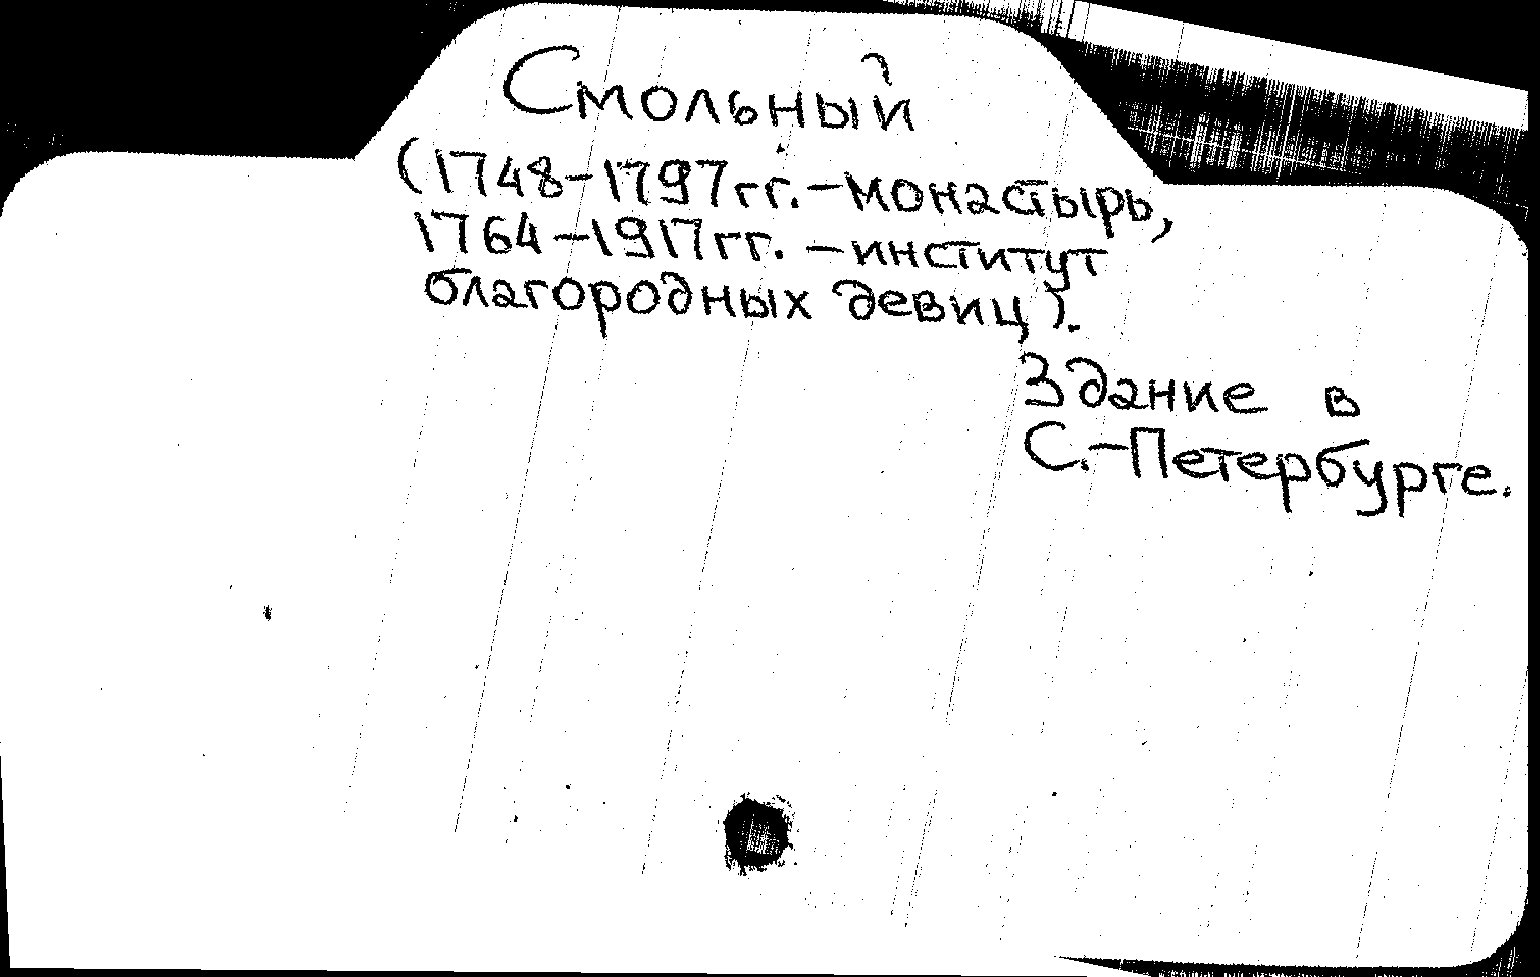 Смольный
(1748-1797гг.-монастырь,
1764-1917гг.-институт
благородных девиц).
Здание в
С.-Петербурге.